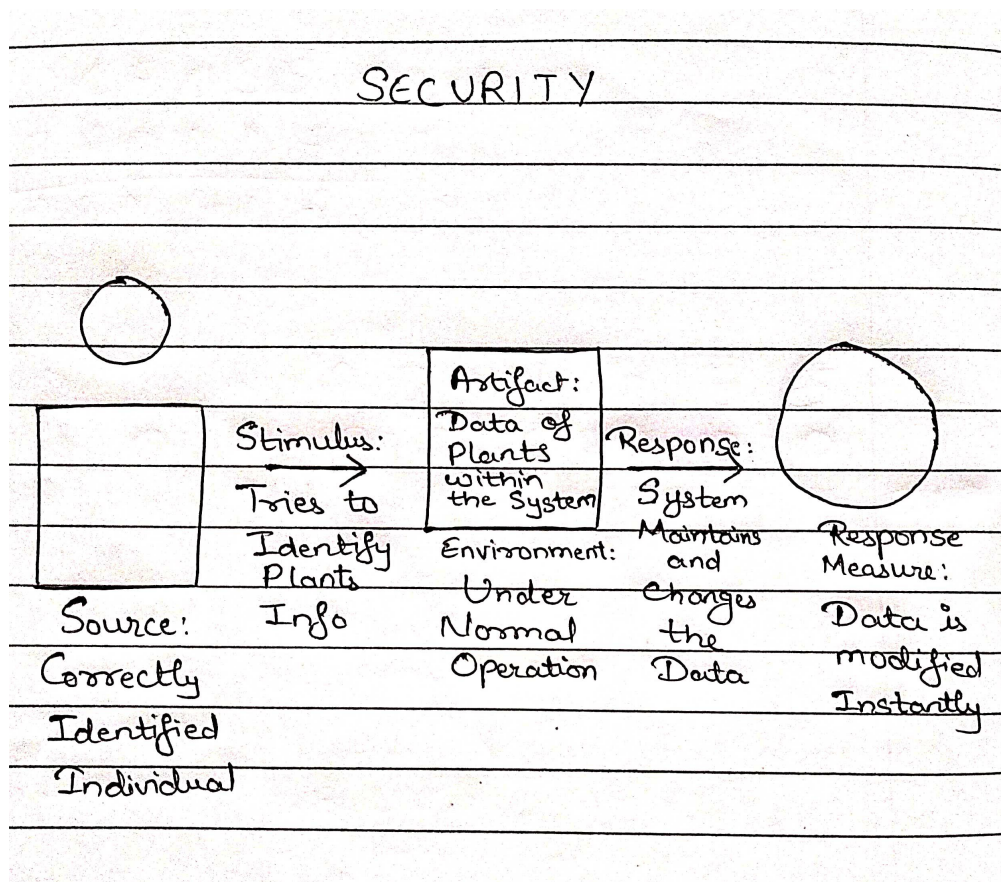 SECURITY
Source:
Correctly
Identified
Individual
Stimulus:
Tries to
Identify
Plants
Info
Artifact:
Data of
Plants
within
the System
Environment:
Under
Normal
Operation
Response:
System
Maintains
and
Changes
the
Data
Response
Measure:
Data is
modified
Instantly